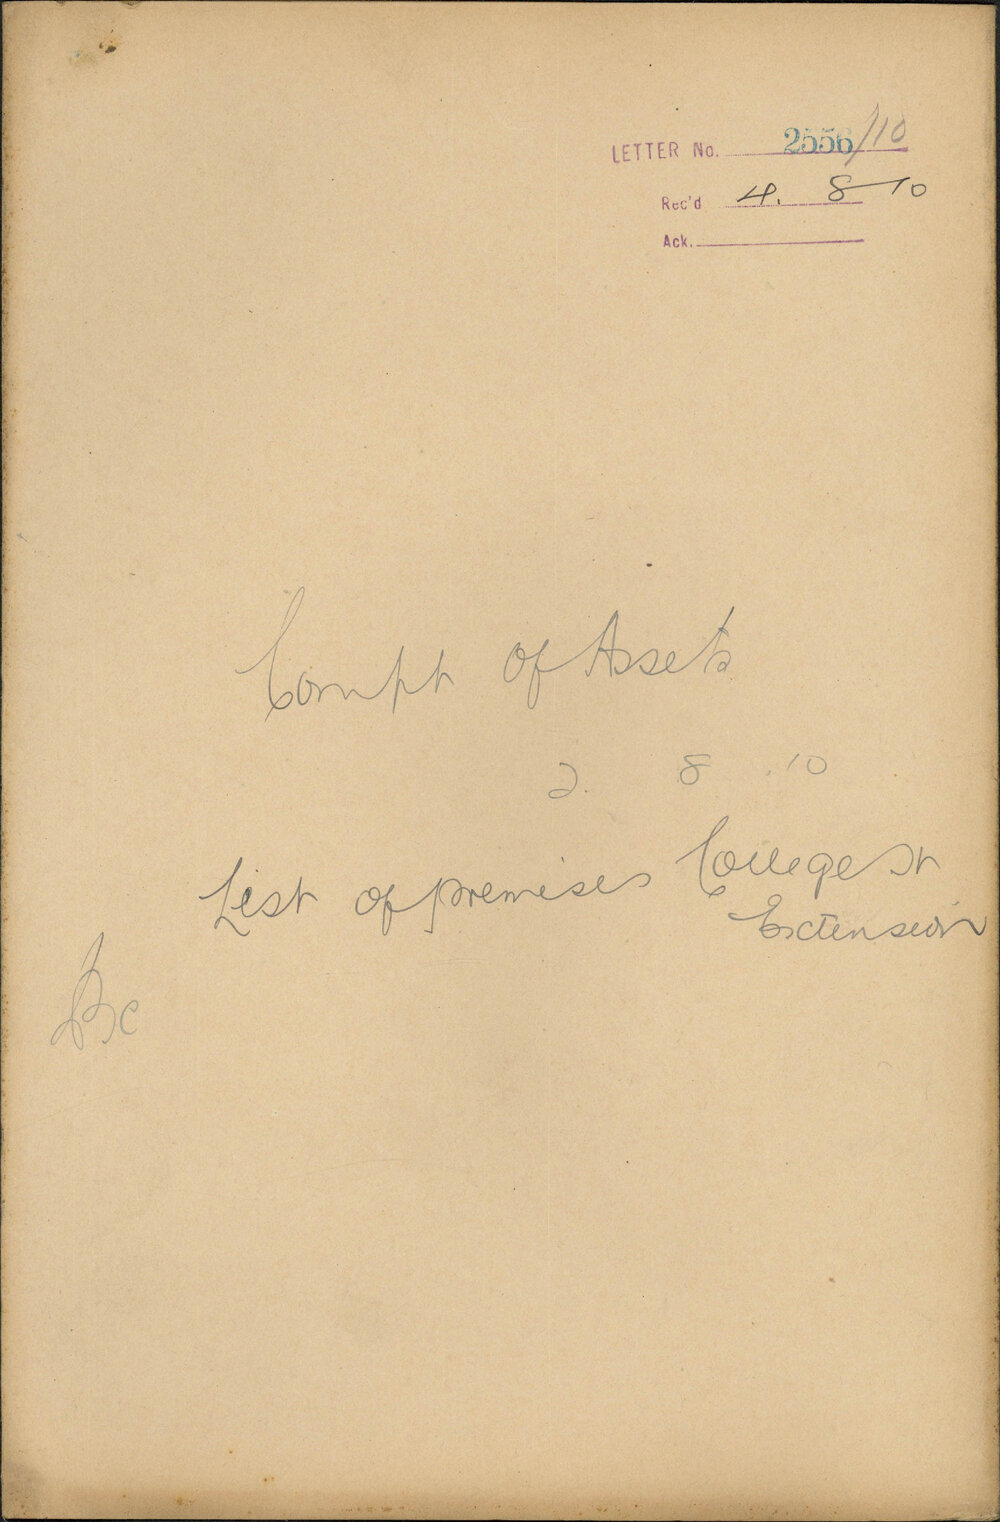 LETTER No. 2556/10
Rec'd 4. 8 10
Ack.
Compt of Assets
2. 8 .10
List of premises College St
Extension